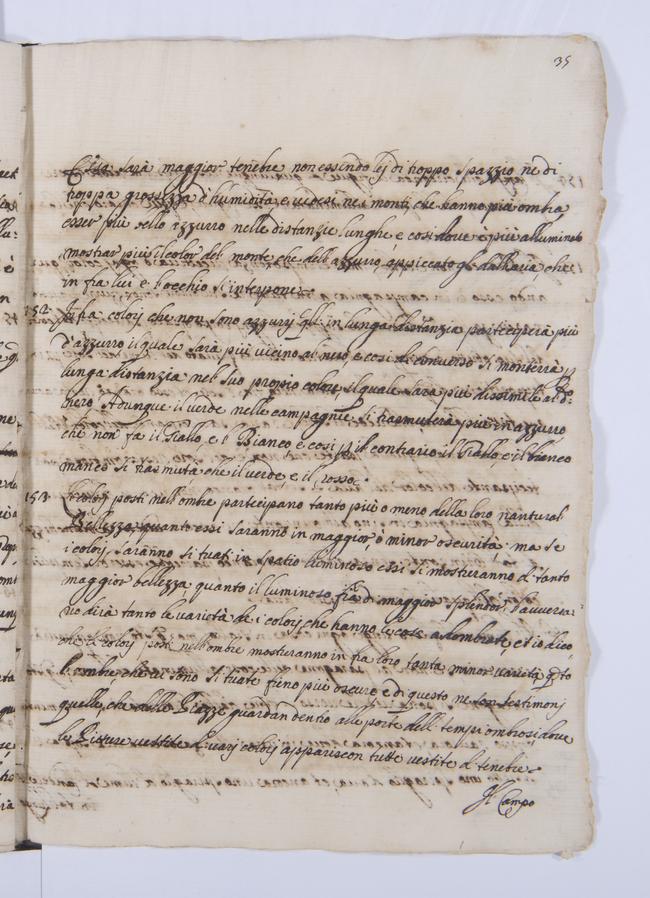 35
essa sarà maggior tenebre non essendo lej di troppo spazzio ne di
troppa grossezza d'humidità, e vedesi ne i monti che hanno più ombra
esser più bello azzurro nelle distanzie lunghe, e così dove è più alluminato
mostrar più il color del monte che dell'azzurro, appiccatogli dall'aria, che
in fra lui e l'occhio s'interpone.
152. Infra colorj che non sono azzurrj quello in lunga distanzia parteciperà più
d'azzurro il quale sarà più vicino al nero, e così di converso si monterrà p
lunga distanzia nel suo proprio colore, il quale sarà più dissimile al do:
nero Adunque il verde nelle campagnie si trasmuterà più in azzurro
che non fa il Giallo, e 'l Bianco, e così pil contrario il Giallo, e il bianco
manco si trasmuta che il verde, e il rosso.
153. I colorj posti nell'ombre partecipano tanto più o meno della loro nantural
Bellezza, quanto essi saranno in maggior, o minor oscurità; ma se
i colorj saranno situati in spatio luminoso essi si mosteranno d tanto
maggior bellezza, quanto il luminoso fia di maggior splendor, l'avversa:
rio dirà tanto le varietà de i colorj che hanno le cose adombrate, et io dico,
che i colorj posti nell'ombre mosteranno in fra loro tanta minor varietà qto
l'ombre che vi sono situate fieno più oscure e di questo ne son testimonj
quelle, che dalle Piazze guardan dentro alle porte dell tempi ombrosi dove
le Pitture vestite d varj colorj appariscon tutte vestite d tenebre.
Il Campo